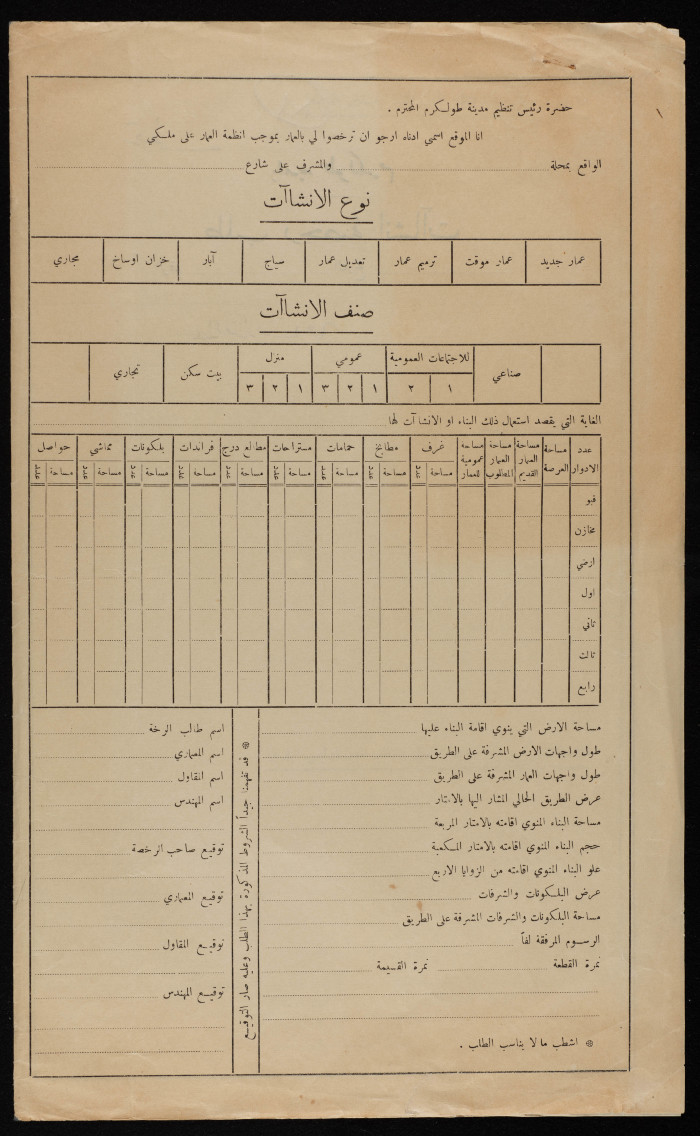 حضرة رئيس تنظيم مدينة طولكرم المحترم .
انا الموقع اسمي ادناه ارجو ان ترخصوا لي بالعمار بموجب انظمة العمار على ملكي
الواقع بمحلة والمشرف على شارع
نوع الانشاآت
عمار جديد عمار موقت ترميم عمار تعديل عمار سياج آبار خزان اوساخ مجاري
صنف الانشاآت
صناعي للاجتماعات العمومية عمومي منزل بيت سكن تجاري
١ ٢ ١ ٢ ٣ ١ ٢ ٣
الغاية التي يقصد استعمال ذلك البناء او الانشاآت لها
عدد الادوار مساحة العرصة مساحة العمار القديم مساحة العمار المطلوب مساحة عمومية للعمار غرف مطابخ حمامات مستراحات مطالع درج فراندات بلكونات مماشي حواصل
مساحة عدد مساحة عدد مساحة عدد مساحة عدد مساحة عدد مساحة عدد مساحة عدد مساحة عدد مساحة عدد
قبو
مخازن
ارضي
اول
تاني
تالت
رابع
مساحة الارض التي ينوي اقامة البناء عليها
طول واجهات الارض المشرفة على الطريق
طول واجهات العمار المشرفة على الطريق
عرض الطريق الحالي المشار اليها بالامتار
مساحة البناء المنوي اقامته بالامتار المربعة
حجم البناء المنوي اقامته بالامتار المكعبة
علو البناء المنوي اقامته من الزوايا الاربع
عرض البلكونات والشرفات
مساحة البلكونات والشرفات المشرفة على الطريق
الرسوم المرفقة لفاً
نمرة القطعة نمرة القسيمة
※ اشطب ما لا يناسب الطلب .
※ قد تفهمنا جيداً الشروط المذكورة بهذا الطلب وعليه صار التوقيع
اسم طالب الرخة
اسم المعماري
اسم المقاول
اسم المهندس
توقيع صاحب الرخصة
توقيع المعماري
توقيع المقاول
توقيع المهندس